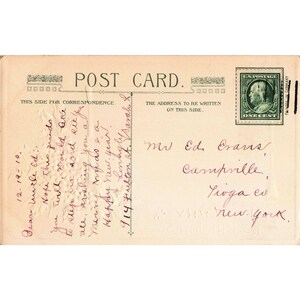 POST CARD.
THIS SIDE FOR CORRESPONDENCE
THE ADDRESS TO BE WRITTEN
ON THIS SIDE.
U.S. POSTAGE
ONE CENT
12-19-10
Dear uncle Ed.
Hope this finds
you well would like
to step in and see
are wishing you all
Merry Xmas & a
Happy new year
714 Fulton st
Mr Ed Evans,
Campville,
Tioga Co
New York.